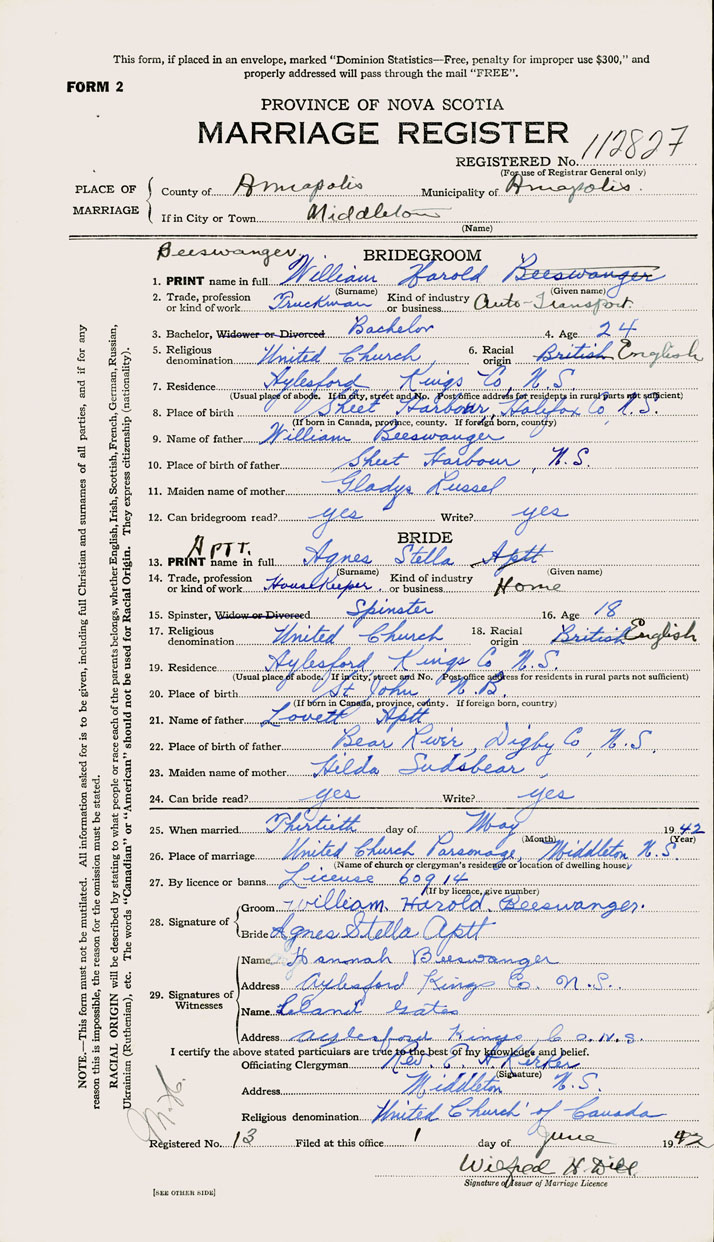 This form, if placed in an envelope, marked “Dominion Statistics—Free, penalty for improper use $300,” and
properly addressed will pass through the mail “FREE”.
FORM 2
PROVINCE OF NOVA SCOTIA
MARRIAGE REGISTER
REGISTERED No. 112827
(For use of Registrar General only)
PLACE OF MARRIAGE
County of Annapolis Municipality of Annapolis.
If in City or Town Middleton
(Name)
Beeswanger
BRIDEGROOM
1. PRINT name in full William Harold Beeswanger
(Surname) (Given name)
2. Trade, profession or kind of work Truckman Kind of industry or business Auto-Transport.
3. Bachelor, Widower or Divorced Bachelor 4. Age 24
5. Religious denomination United Church 6. Racial origin British English
7. Residence Aylesford Kings Co, N.S.
(Usual place of abode. If in city, street and No. Post office address for residents in rural parts not sufficient)
8. Place of birth Sheet Harbour, Halifax Co N.S.
(If born in Canada, province, county. If foreign born, country)
9. Name of father William Beeswanger
10. Place of birth of father Sheet Harbour, N.S.
11. Maiden name of mother Gladys Russel
12. Can bridegroom read? yes Write? yes
BRIDE
APTT.
13. PRINT name in full Agnes Stella Aptt
(Surname) (Given name)
14. Trade, profession or kind of work Housekeeper. Kind of industry or business Home
15. Spinster, Widow or Divorced Spinster 16. Age 18
17. Religious denomination United Church 18. Racial origin British English
19. Residence Aylesford Kings Co N.S.
(Usual place of abode. If in city, street and No. Post office address for residents in rural parts not sufficient)
20. Place of birth St John N.B.
(If born in Canada, province, county. If foreign born, country)
21. Name of father Lovett Aptt
22. Place of birth of father Bear River, Digby Co, N.S.
23. Maiden name of mother Hilda Sudsbear
24. Can bride read? yes Write? yes
25. When married Thirtieth day of May 1942
(Month) (Year)
26. Place of marriage United Church Parsonage, Middleton N.S.
(Name of church or clergyman's residence or location of dwelling house)
27. By licence or banns License 60914
(If by licence, give number)
28. Signature of
Groom William Harold Beeswanger.
Bride Agnes Stella Aptt
29. Signatures of Witnesses
Name Hannah Beeswanger
Address Aylesford Kings Co. N.S.
Name Leland Gates
Address Aylesford Kings Co. N.S.
I certify the above stated particulars are true to the best of my knowledge and belief.
Officiating Clergyman Rev. H
(Signature)
Address Middleton N.S.
Religious denomination United Church of Canada
Registered No. 13 Filed at this office 1 day of June 1942
Wilfred H. Dill
Signature of Issuer of Marriage Licence
[SEE OTHER SIDE]
NOTE.—This form must not be mutilated. All information asked for is to be given, including full Christian and surnames of all parties, and if for any
reason this is impossible, the reason for the omission must be stated.
RACIAL ORIGIN will be described by stating to what people or race each of the parents belongs, whether English, Irish, Scottish, French, German, Russian,
Ukrainian (Ruthenian), etc. The words “Canadian” or “American” should not be used for Racial Origin. They express citizenship (nationality).